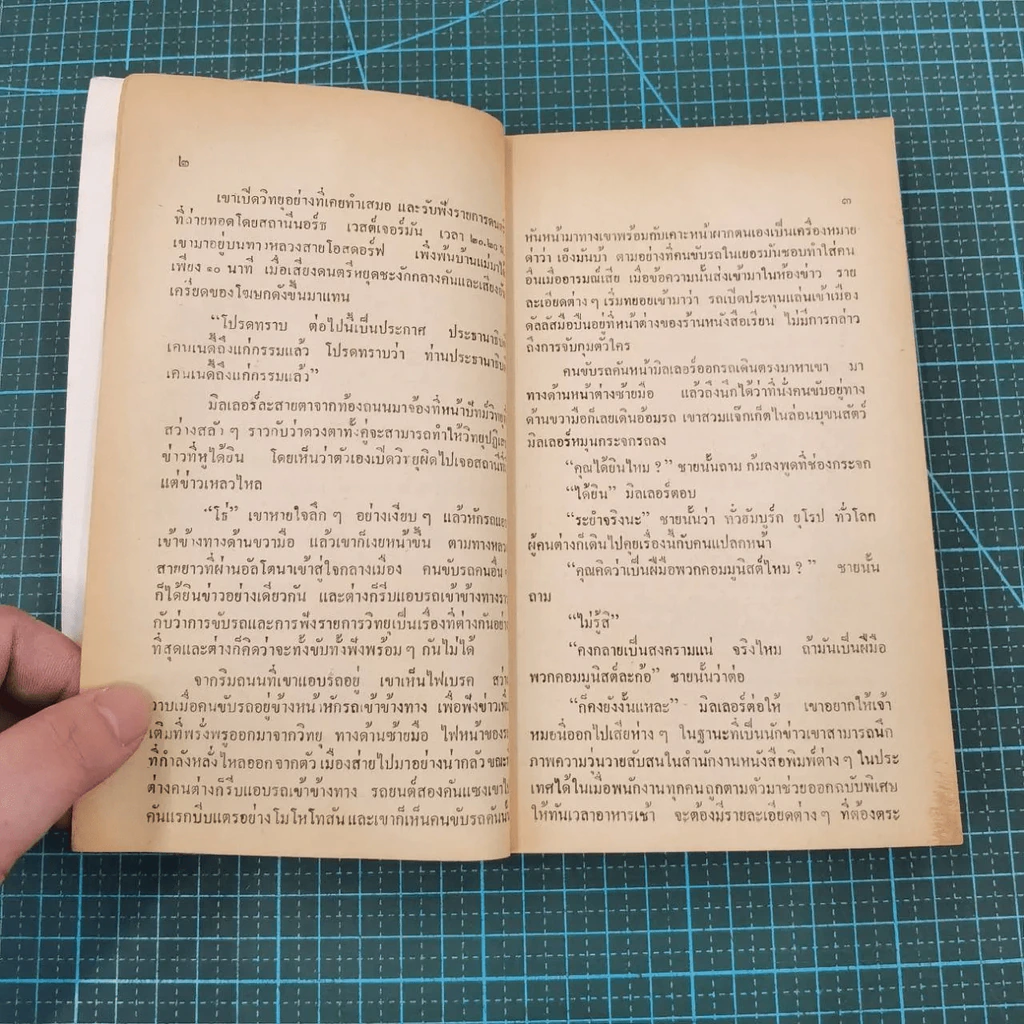 ๒
เขาเปิดวิทยุอย่างที่เคยทำเสมอ และรับฟังรายการดนตรี
ที่ถ่ายทอดโดยสถานีนอร์ธ เวสต์เจอร์มัน เวลา ๒๐.๒๐ น.
เขามาอยู่บนทางหลวงสายโอสดอร์ฟ เพิ่งพ้นบ้านแม่มาได้
เพียง ๑๐ นาที เมื่อเสียงดนตรีหยุดชะงักกลางคันและเสียงอัน
เครียดของโฆษกดังขึ้นมาแทน
“โปรดทราบ ต่อไปนี้เป็นประกาศ ประธานาธิบดี
เคนเนดี้ถึงแก่กรรมแล้ว โปรดทราบว่า ท่านประธานาธิบดี
เคนเนดี้ถึงแก่กรรมแล้ว”
มิลเลอร์ละสายตาจากท้องถนนมาจ้องที่หน้าปัทม์วิทยุที่
สว่างสลัว ๆ ราวกับว่าดวงตาทั้งคู่จะสามารถทำให้วิทยุปฏิเสธ
ข่าวที่หูได้ยิน โดยเห็นว่าตัวเองเปิดวิทยุผิดไปเจอสถานีที่มี
แต่ข่าวเหลวไหล
“โธ่” เขาหายใจลึก ๆ อย่างเงียบ ๆ แล้วหักรถแอบ
เข้าข้างทางด้านขวามือ แล้วเขาก็เงยหน้าขึ้น ตามทางหลวง
สายยาวที่ผ่านอัลโตนาเข้าสู่ใจกลางเมือง คนขับรถคนอื่น ๆ
ก็ได้ยินข่าวอย่างเดียวกัน และต่างก็รีบแอบรถเข้าข้างทางราว
กับว่าการขับรถและการฟังรายการวิทยุเป็นเรื่องที่ต่างกันอย่าง
ที่สุดและต่างก็คิดว่าจะทั้งขับทั้งฟังพร้อม ๆ กันไม่ได้
จากริมถนนที่เขาแอบรถอยู่ เขาเห็นไฟเบรค สว่าง
วาบเมื่อคนขับรถอยู่ข้างหน้าหักรถเข้าข้างทาง เพื่อฟังข่าวเพิ่ม
เติมที่พรั่งพรูออกมาจากวิทยุ ทางด้านซ้ายมือ ไฟหน้าของรถ
ที่กำลังหลั่งไหลออกจากตัวเมืองส่ายไปมาอย่างน่ากลัวขณะที่
ต่างคนต่างก็รีบแอบรถเข้าข้างทาง รถยนต์สองคันแซงเขาไป
คันแรกบีบแตรอย่างโมโหโทสัน และเขาก็เห็นคนขับรถคันนั้น
๓
หันหน้ามาทางเขาพร้อมกับเคาะหน้าผากตนเองเป็นเครื่องหมาย
ด่าว่า เอ็งมันบ้า ตามอย่างที่คนขับรถในเยอรมันชอบทำใส่คน
อื่นเมื่ออารมณ์เสีย เมื่อข้อความนั้นส่งเข้ามาในห้องข่าว ราย
ละเอียดต่าง ๆ เริ่มทยอยเข้ามาว่า รถเปิดประทุนแล่นเข้าเมือง
ดัลลัสมือปืนอยู่ที่หน้าต่างของร้านหนังสือเรียน ไม่มีการกล่าว
ถึงการจับกุมตัวใคร
คนขับรถคันหน้ามิลเลอร์ออกรถเดินตรงมาหาเขา มา
ทางด้านหน้าต่างซ้ายมือ แล้วถึงนึกได้ว่าที่นั่งคนขับอยู่ทาง
ด้านขวามือก็เลยเดินอ้อมรถ เขาสวมแจ๊กเก็ตไนล่อนบุขนสัตว์
มิลเลอร์หมุนกระจกรถลง
“คุณได้ยินไหม ?” ชายนั้นถาม ก้มลงพูดที่ช่องกระจก
“ได้ยิน” มิลเลอร์ตอบ
“ระยำจริงนะ” ชายนั้นว่า ทั่วฮัมบูร์ก ยุโรป ทั่วโลก
ผู้คนต่างก็เดินไปคุยเรื่องนี้กับคนแปลกหน้า
“คุณคิดว่าเป็นฝีมือพวกคอมมูนิสต์ไหม ? ” ชายนั้น
ถาม
“ไม่รู้สิ”
“คงกลายเป็นสงครามแน่ จริงไหม ถ้ามันเป็นฝีมือ
พวกคอมมูนิสต์ละก้อ” ชายนั้นว่าต่อ
“ก็คงยังงั้นแหละ” มิลเลอร์ต่อให้ เขาอยากให้เจ้า
หมอนี่ออกไปเสียห่าง ๆ ในฐานะที่เป็นนักข่าวเขาสามารถนึก
ภาพความวุ่นวายสับสนในสำนักงานหนังสือพิมพ์ต่าง ๆ ในประ
เทศได้ในเมื่อพนักงานทุกคนถูกตามตัวมาช่วยออกฉบับพิเศษ
ให้ทันเวลาอาหารเช้า จะต้องมีรายละเอียดต่าง ๆ ที่ต้องตระ